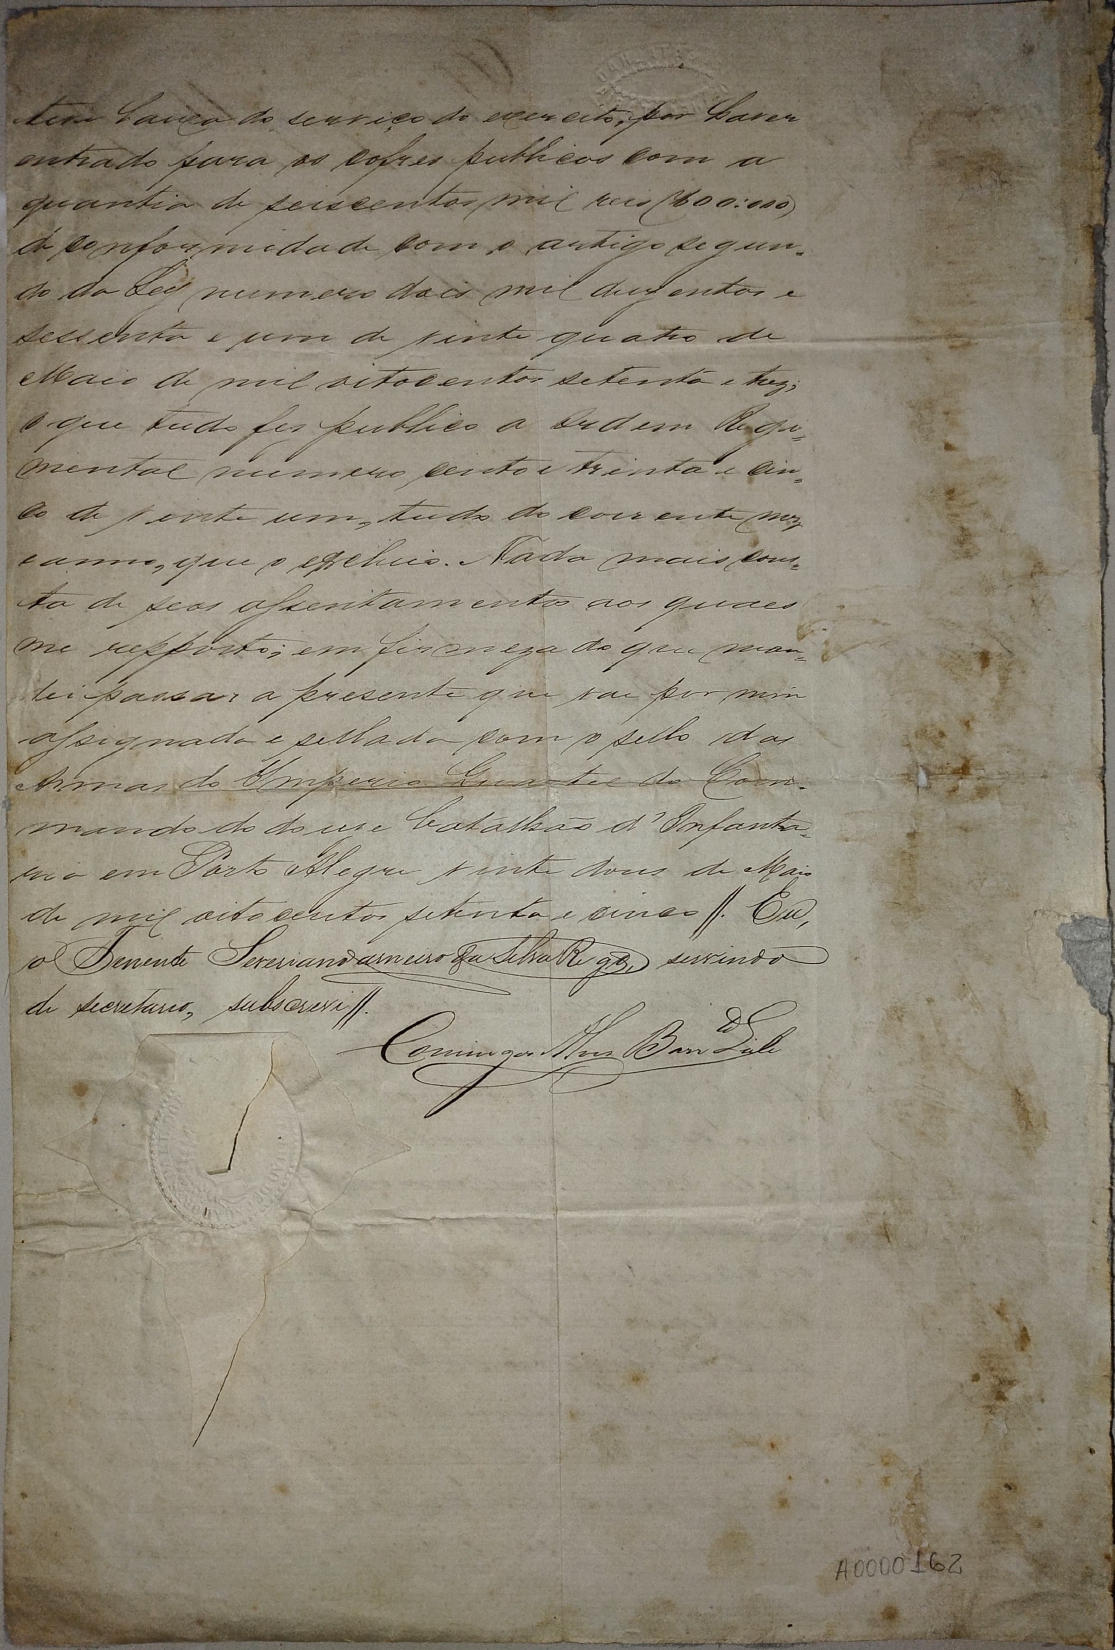 teve baixa do serviço do exercito, por haver
entrado para os cofres publicos com a
quantia de seiscentos mil reis (600:000)
de conformidade com o artigo segun-
do da Ley numero dois mil duzentos e
sessenta e um de vinte quatro de
Maio de mil oitocentos setenta e trez;
o que tudo fez publico a Ordem Regi-
mental numero cento e trinta e cin-
co de vinte um, tudo do corrente mez
e anno, que o excluio. Nada mais cons-
ta de seos assentamentos aos quaes
me repporto; em firmeza do que man-
dei passar a presente que vae por mim
assignada e sellada com o sello das
Armas do Imperio Quartel do Com-
mando do doze Batalhão d'Infanta-
ria em Porto Alegre vinte dous de Maio
de mil oitocentos setenta e cinco //. Eu,
o Tenente Severiano Carneiro da Silva Rego, servindo
de secretario, subscrevi //.
Domingos Alves Barr.to Leite
A0000162